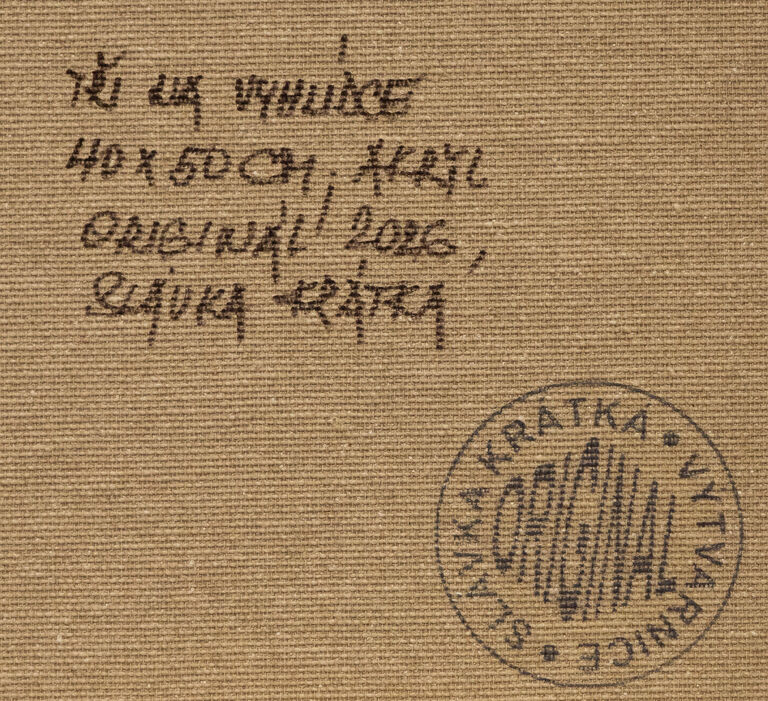 TŘI NA VYHLÍDCE
40 X 50 CM, AKRYL
ORIGINÁL 2026,
SLÁVKA KRÁTKÁ
SLÁVKA KRÁTKÁ • VÝTVARNICE •
ORIGINAL